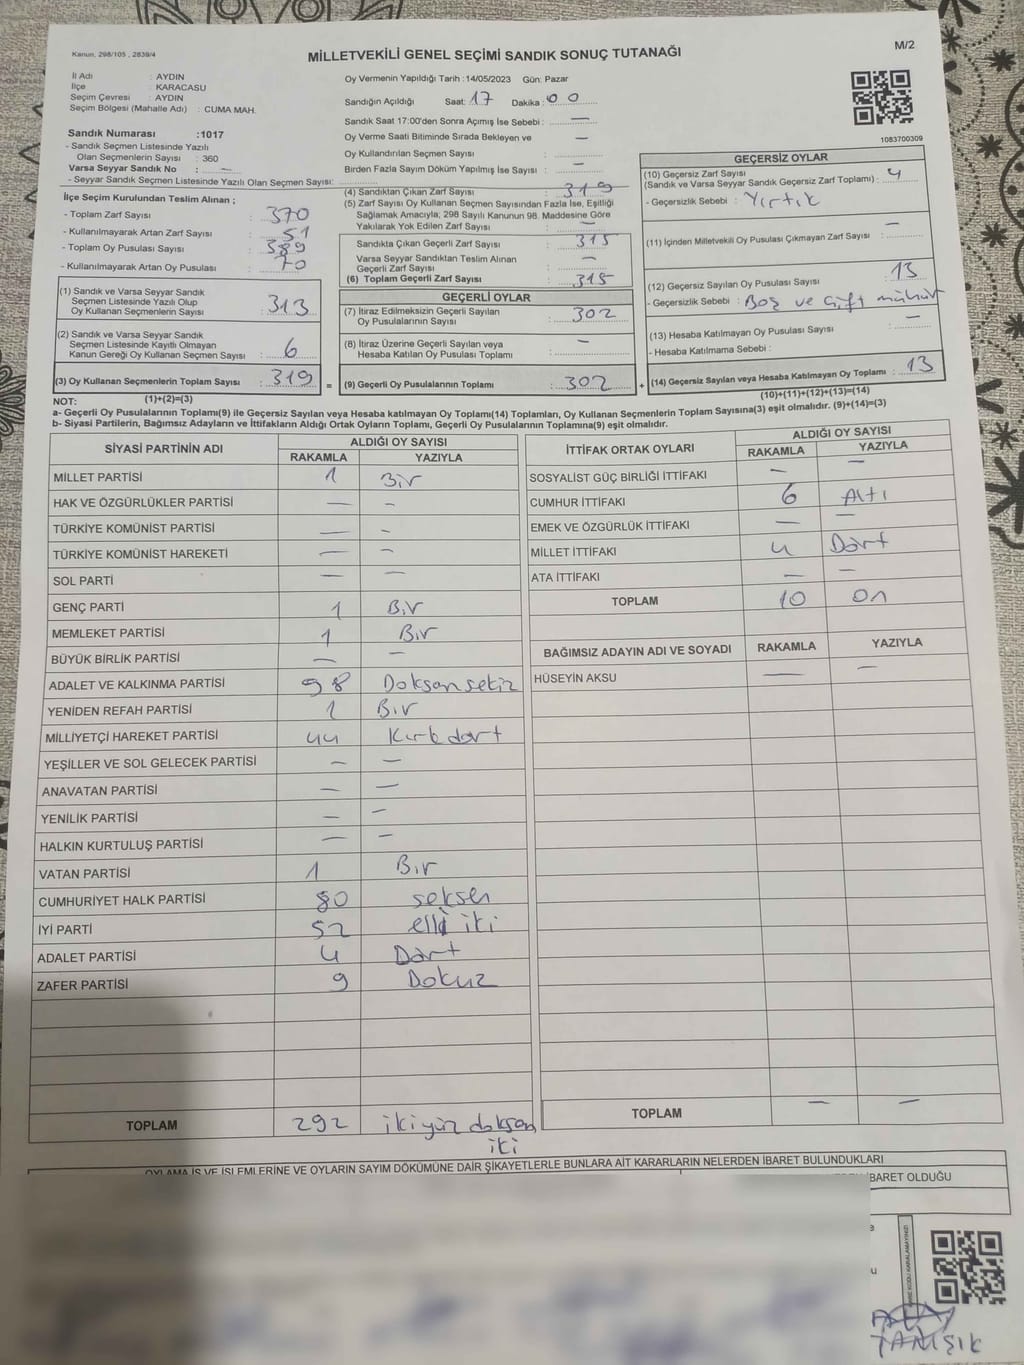 Kanun, 298/105 , 2839/4
MİLLETVEKİLİ GENEL SEÇİMİ SANDIK SONUÇ TUTANAĞI
M/2
İl Adı : AYDIN
İlçe : KARACASU
Seçim Çevresi : AYDIN
Seçim Bölgesi (Mahalle Adı) : CUMA MAH.
Sandık Numarası :1017
- Sandık Seçmen Listesinde Yazılı
Olan Seçmenlerin Sayısı : 360
Varsa Seyyar Sandık No : —
- Seyyar Sandık Seçmen Listesinde Yazılı Olan Seçmen Sayısı:
Oy Vermenin Yapıldığı Tarih :14/05/2023 Gün: Pazar
Sandığın Açıldığı Saat: 17 Dakika : 00
Sandık Saat 17:00'den Sonra Açımış İse Sebebi : —
Oy Verme Saati Bitiminde Sırada Bekleyen ve
Oy Kullandırılan Seçmen Sayısı : —
Birden Fazla Sayım Döküm Yapılmış İse Sayısı : —
1083700309
İlçe Seçim Kurulundan Teslim Alınan ;
- Toplam Zarf Sayısı : 370
- Kullanılmayarak Artan Zarf Sayısı : 51
- Toplam Oy Pusulası Sayısı : 389
- Kullanılmayarak Artan Oy Pusulası : 70
(1) Sandık ve Varsa Seyyar Sandık
Seçmen Listesinde Yazılı Olup
Oy Kullanan Seçmenlerin Sayısı : 313
(2) Sandık ve Varsa Seyyar Sandık
Seçmen Listesinde Kayıtlı Olmayan
Kanun Gereği Oy Kullanan Seçmen Sayısı : 6
(3) Oy Kullanan Seçmenlerin Toplam Sayısı : 319
(1)+(2)=(3)
(4) Sandıktan Çıkan Zarf Sayısı : 319
(5) Zarf Sayısı Oy Kullanan Seçmen Sayısından Fazla İse, Eşitliği
Sağlamak Amacıyla; 298 Sayılı Kanunun 98. Maddesine Göre
Yakılarak Yok Edilen Zarf Sayısı : —
Sandıkta Çıkan Geçerli Zarf Sayısı : 315
Varsa Seyyar Sandıktan Teslim Alınan
Geçerli Zarf Sayısı : —
(6) Toplam Geçerli Zarf Sayısı : 315
GEÇERLİ OYLAR
(7) İtiraz Edilmeksizin Geçerli Sayılan
Oy Pusulalarının Sayısı : 302
(8) İtiraz Üzerine Geçerli Sayılan veya
Hesaba Katılan Oy Pusulası Toplamı : —
= (9) Geçerli Oy Pusulalarının Toplamı : 302
GEÇERSİZ OYLAR
(10) Geçersiz Zarf Sayısı
(Sandık ve Varsa Seyyar Sandık Geçersiz Zarf Toplamı) : 4
- Geçersizlik Sebebi : Yırtık
(11) İçinden Milletvekili Oy Pusulası Çıkmayan Zarf Sayısı : —
(12) Geçersiz Sayılan Oy Pusulası Sayısı : 13
- Geçersizlik Sebebi : Boş ve Çift mühür
(13) Hesaba Katılmayan Oy Pusulası Sayısı : —
- Hesaba Katılmama Sebebi :
+ (14) Geçersiz Sayılan veya Hesaba Katılmayan Oy Toplamı : 13
(10)+(11)+(12)+(13)=(14)
NOT:
a- Geçerli Oy Pusulalarının Toplamı(9) ile Geçersiz Sayılan veya Hesaba katılmayan Oy Toplamı(14) Toplamları, Oy Kullanan Seçmenlerin Toplam Sayısına(3) eşit olmalıdır. (9)+(14)=(3)
b- Siyasi Partilerin, Bağımsız Adayların ve İttifakların Aldığı Ortak Oyların Toplamı, Geçerli Oy Pusulalarının Toplamına(9) eşit olmalıdır.
SİYASİ PARTİNİN ADI ALDIĞI OY SAYISI
RAKAMLA YAZIYLA
MİLLET PARTİSİ 1 Bir
HAK VE ÖZGÜRLÜKLER PARTİSİ — —
TÜRKİYE KOMÜNİST PARTİSİ — —
TÜRKİYE KOMÜNİST HAREKETİ — —
SOL PARTİ — —
GENÇ PARTİ 1 Bir
MEMLEKET PARTİSİ 1 Bir
BÜYÜK BİRLİK PARTİSİ — —
ADALET VE KALKINMA PARTİSİ 98 Doksan sekiz
YENİDEN REFAH PARTİSİ 1 Bir
MİLLİYETÇİ HAREKET PARTİSİ 44 Kırk dört
YEŞİLLER VE SOL GELECEK PARTİSİ — —
ANAVATAN PARTİSİ — —
YENİLİK PARTİSİ — —
HALKIN KURTULUŞ PARTİSİ — —
VATAN PARTİSİ 1 Bir
CUMHURİYET HALK PARTİSİ 80 seksen
İYİ PARTİ 52 elli iki
ADALET PARTİSİ 4 Dört
ZAFER PARTİSİ 9 Dokuz
TOPLAM 292 ikiyüz doksan
iki
İTTİFAK ORTAK OYLARI ALDIĞI OY SAYISI
RAKAMLA YAZIYLA
SOSYALİST GÜÇ BİRLİĞİ İTTİFAKI — —
CUMHUR İTTİFAKI 6 Altı
EMEK VE ÖZGÜRLÜK İTTİFAKI — —
MİLLET İTTİFAKI 4 Dört
ATA İTTİFAKI — —
TOPLAM 10 On
BAĞIMSIZ ADAYIN ADI VE SOYADI RAKAMLA YAZIYLA
HÜSEYİN AKSU — —
TOPLAM — —
OYLAMA İŞ VE İŞLEMLERİNE VE OYLARIN SAYIM DÖKÜMÜNE DAİR ŞİKAYETLERLE BUNLARA AİT KARARLARIN NELERDEN İBARET BULUNDUKLARI
İBARET OLDUĞU
TANIŞIK